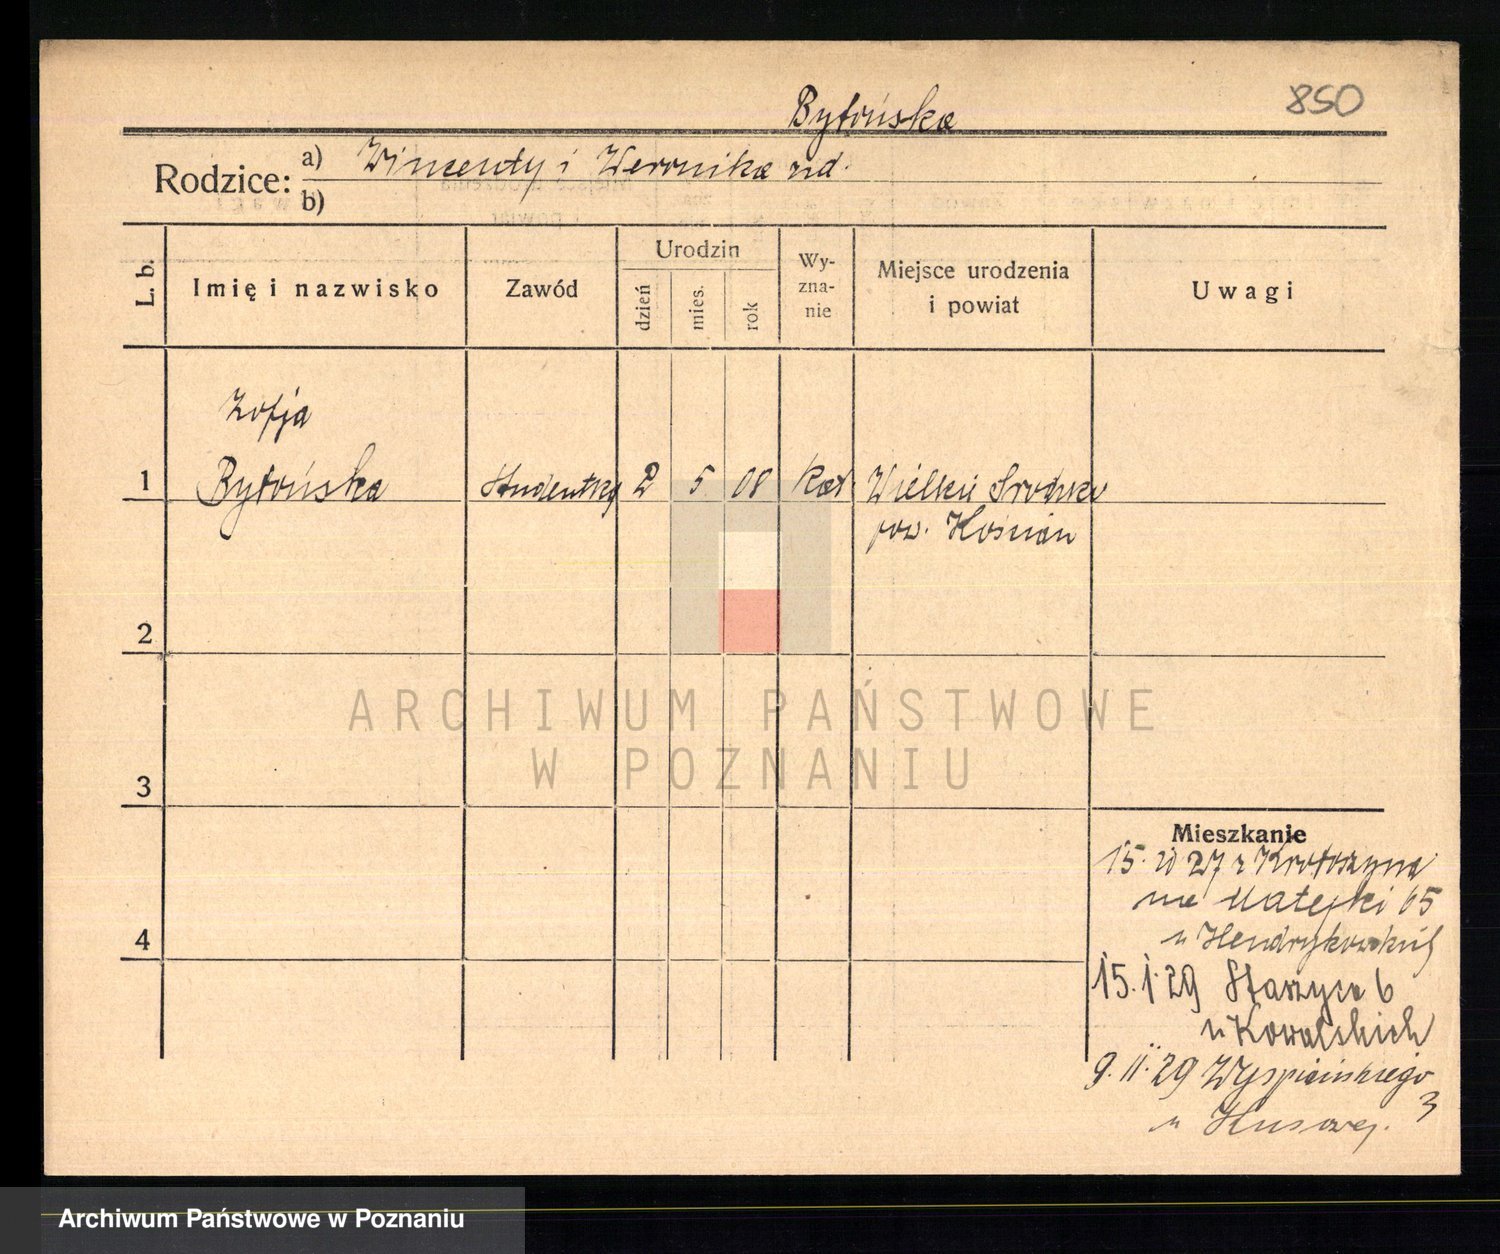 Bytońska
850
Rodzice: a) Wincenty i Weronika nd.
b)
L. b.
Imię i nazwisko
Zawód
Urodzin
dzień
mies.
rok
Wy-
zna-
nie
Miejsce urodzenia
i powiat
Uwagi
Zofja
1 Bytońska Studentką 2 5 08 kat. Wielkie
pow. Kościan
2
3
4
Mieszkanie
15. 27 z Krotoszyna
na Matejki 65
u Hendrykowskich
15. 1. 29 Staszyca 6
u Kowalskich
9. II. 29 Wyspiańskiego
3
u
ARCHIWUM PAŃSTWOWE
W POZNANIU
Archiwum Państwowe w Poznaniu